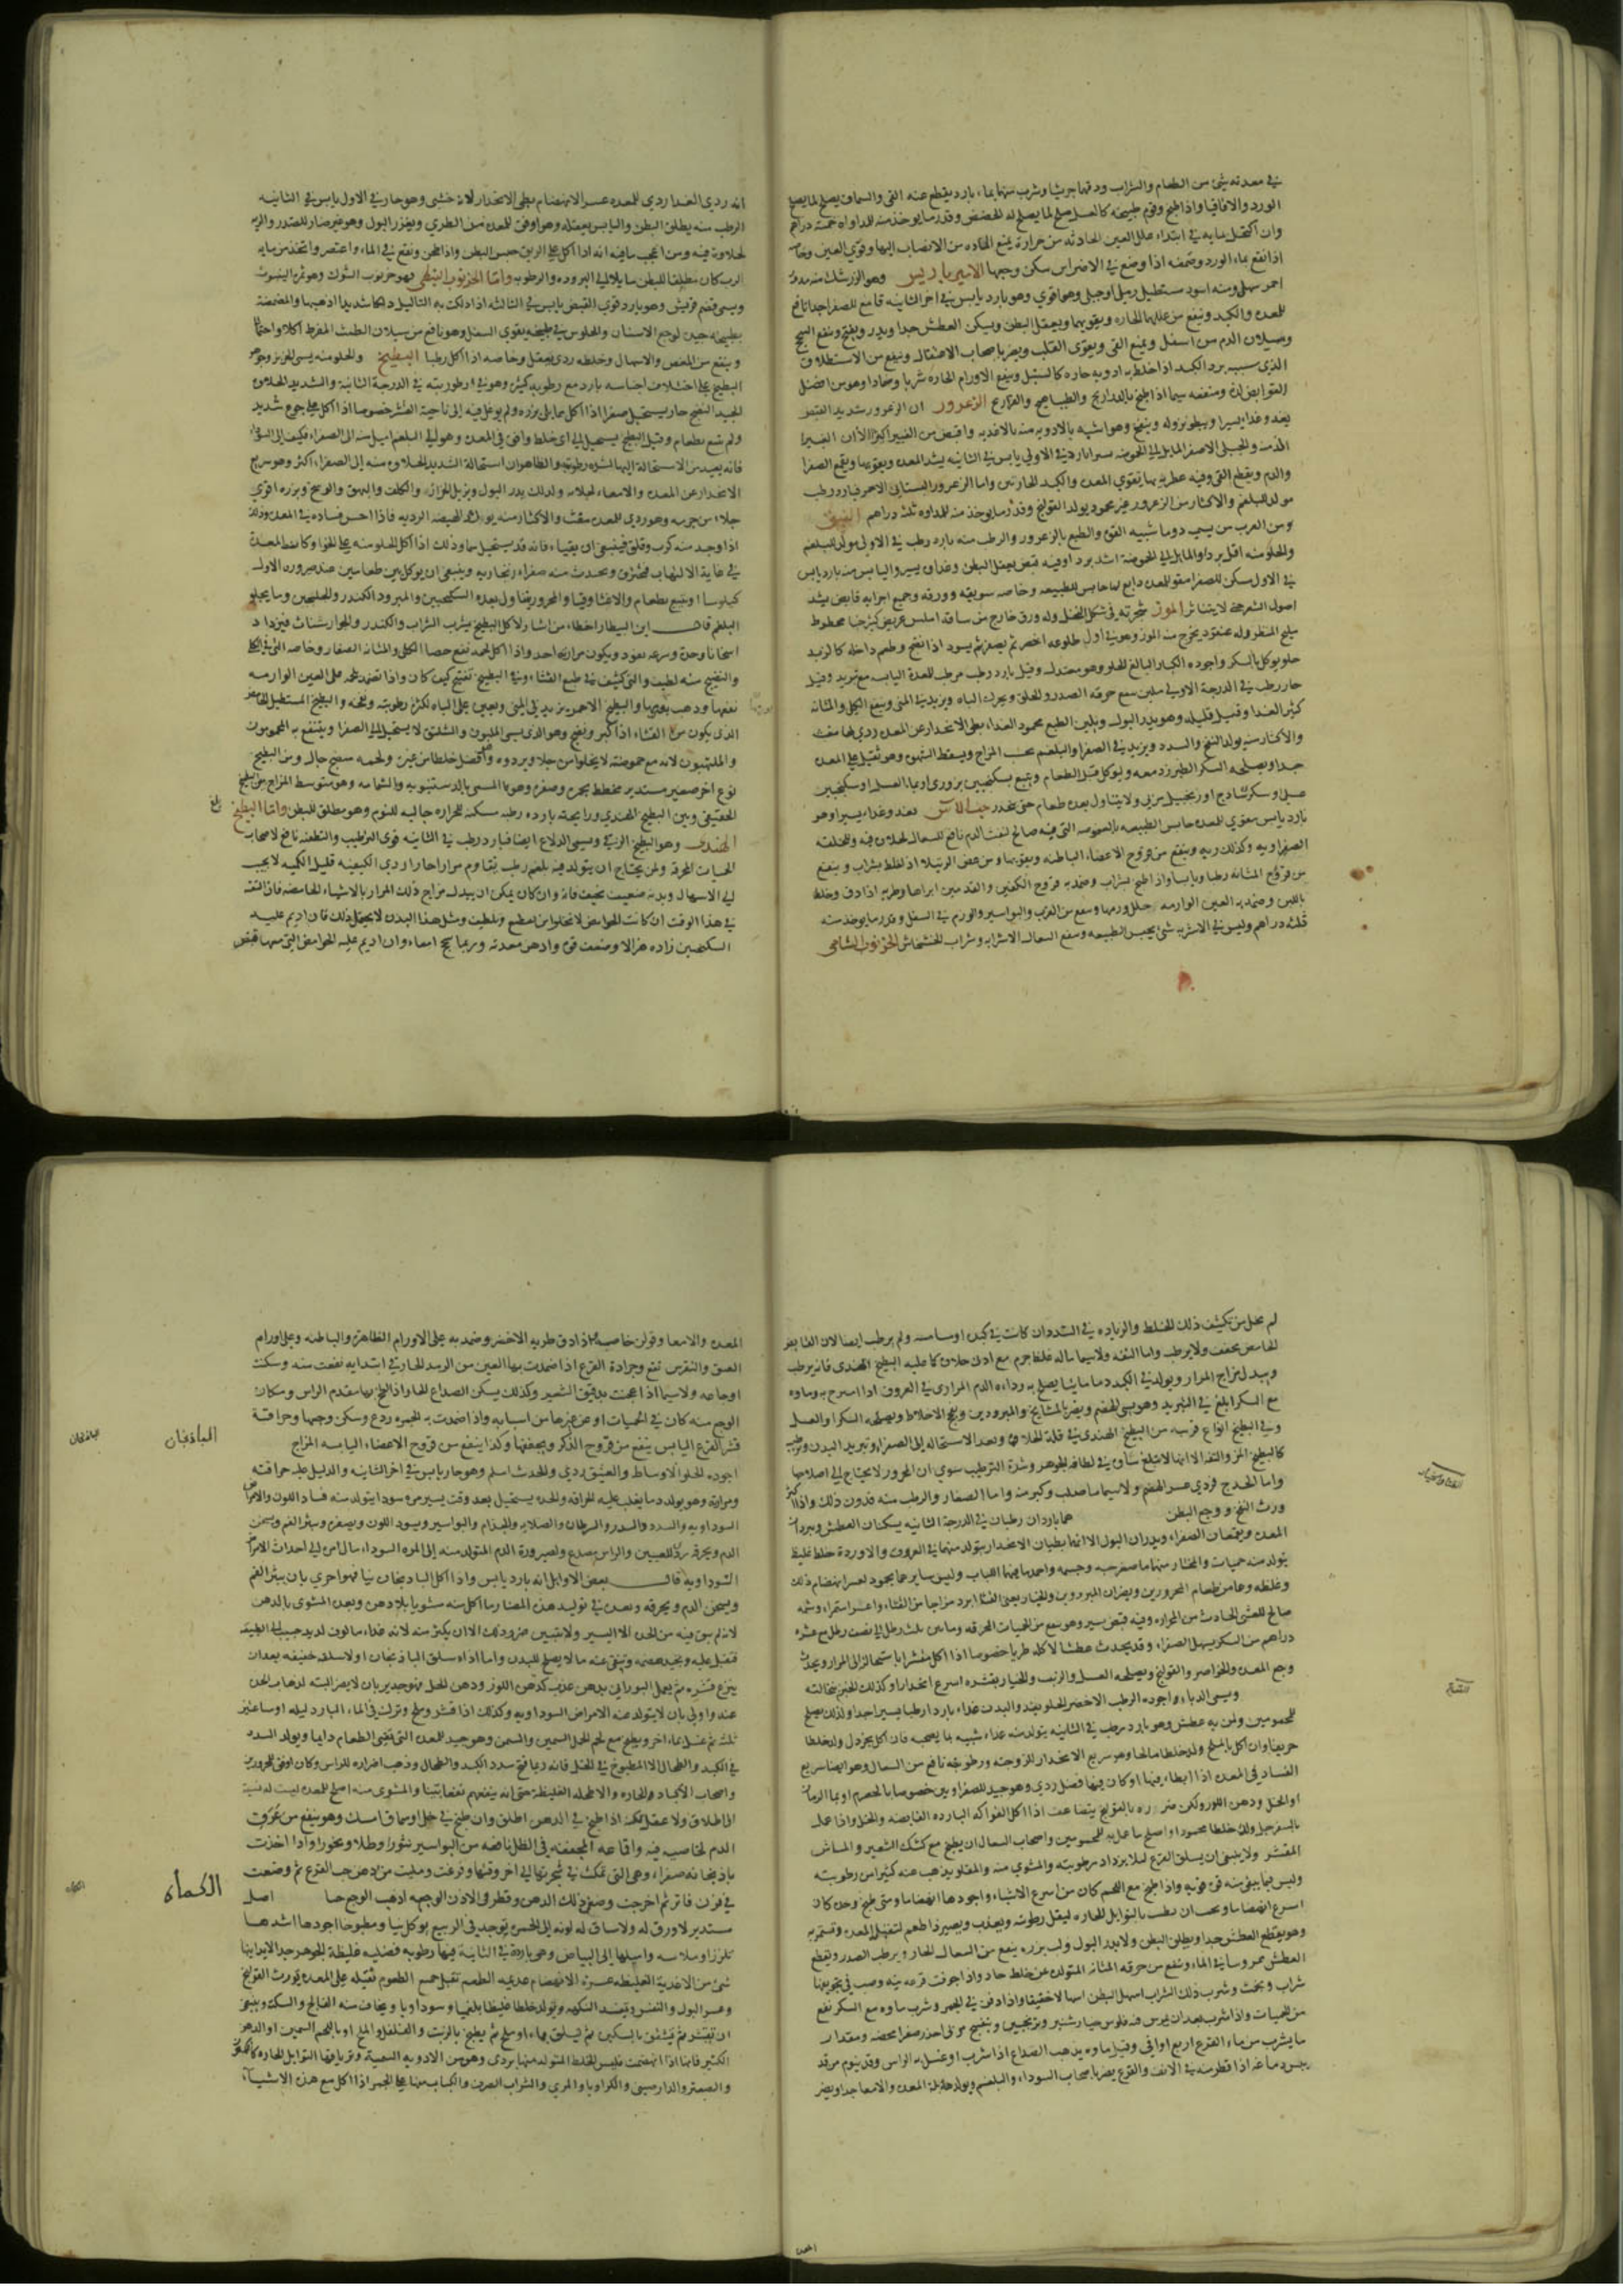 في معدته شئ من الطعام والشراب ودقها جريشا وشرب منها بماء بارد يقطع عنه القئ والسماق يصلح لما يصلح
الورد والاقاقيا واذا طبخ وقوم طبيخه كالعسل صلح لما يصلح له الحضض وقدر ما يوخذ منه للمداواه خمسة دراهم
وان اكتحل بمايه في ابتداء علل العين الحادثه من حرارة يمنع الماده من الانصباب اليها وقوي العين
اذا نقع بماء الورد وضمغه اذا وضع في الاضراس سكن وجعها الامير باريس وهو الزرشك منه مدور
احمر سهلي ومنه اسود مستطيل رملي او جبلي وهو اقوي وهو بارد يابس في اخر الثانيه قامع للصفرا جدا نافع
للمعده والكبد وينفع من عللهما الحاره ويقويهما ويعقل البطن ويسكن العطش جدا
وسيلان الدم من اسفل ويمنع القي ويقوي القلب ويضر باصحاب الاعتقال وينفع من الاستطلاق
الذي سببه برد الكبد اذا خلط به ادويه حاره كالسنبل وينفع الاورام الحاره شربا وضمادا وهو من افضل
القوابض لذة ومنفعه سيما اذا طبخ بالدراريج والطياهيج والفراريج الزعرور ان الزعرور شديد القبض
يغذو غذا يسيرا ويبطو نزوله وينفخ وهو اشبه بالادويه منه بالاغذيه واقبض من الغبيرا كثيرا الا ان الغبيرا
الذ منه والجبلي الاصفر المايل الي الحموضه بارد في الاولي يابس في الثانيه يشد المعده ويقويها ويقمع الصفرا
والدم ويقطع القي وفيه عطريه بها يقوي المعده والكبد الحارتين واما الزعرور البستاني الاحمر فبارد رطب
مولد للبلغم والاكثار من الزعرور غير محمود يولد القولنج وقدر ما يوخذ منه للمداوه ثلث دراهم النبق
ومن العرب من يسمي دوما شبيه القوي والطبع بالزعرور والرطب منه بارد رطب في الاولي مولد للبلغم
والحلو منه اقل بردا والمايل الي الحموضة اشد بردا وفيه قبض يعقل البطن وغذاه يسير واليابس منه بارد يابس
في الاول مسكن للصفرا مقو للمعده دابغ لها حابس للطبيعه وخاصه سويقه وورقه وجميع اجزايه قابض يشد
اصول الشعر حتي لا يتناثر الموز شجرته في شكل النخل وله ورق خارج من ساقه املس عريض كثير جدا مخطوط
مليح المنظر وله عنقود يخرج منه الموز وهو في اول طلوعه اخضر ثم يصفر ثم يسود اذا نضج وطعم داخله كالزبد
حلو يوكل بالسكر واجوده الكبار البالغ الحلو وهو معتدل وقيل بارد رطب مرطب للمعدة اليابسه مع تبريد وقيل
حار رطب في الدرجة الاولي ملين ينفع حرقه الصدر والحلق ويحرك الباه ويزيد في المني وينفع الكلي والمثانه
كثير الغذا وقيل قليله وهو يدر البول ويلين الطبع محمود الغذاء بطي الانحدار عن المعده ردي لها مغث
والاكثار منه يولد النفخ والسدد ويزيد في الصفرا والبلغم بحسب المزاج ويسقط الشهوه وهو ثقيل علي المعده
جدا ويصلحه السكر الطبرزد معه ويوكل قبل الطعام ويتبع بسكنجبين بزوري او بماء العسل او سكنجبين
عسلي وسكر ساذج او زنجبيل مربي ولا يتناول بعده طعام حتي ينحدر حب الاس يغذو غذاء يسيرا وهو
بارد يابس مقوي للمعده حابس الطبيعه بالعفوصه التي فيه صالح لنفث الدم نافع للسعال لحلاوه فيه وللخلفه
الصفراويه وكذلك ربه وينفع من قروح الاعضاء الباطنه ويقويها ومن عضه الرتيلا اذا خلط بشراب وينفع
من قروح المثانه رطبا ويابسا واذا طبخ بشراب وضمد به قروح الكفين والقدمين ابراها وطريه اذا دق وخلط
باللبن وضمد به العين الوارمه حلل ورمها وينفع من الغرب والبواسير والورم في السفل وقدر ما يوخذ منه
ثلثة دراهم وليس في الاشربه شئ يحبس الطبيعه وينفع السعال الا شرابه وشراب الخشخاش الخرنوب الشامي
انه ردي الغذا ردي للمعده عسر الانهضام بطي الانحدار لانه خشبي وهو حار في الاول يابس في الثانيه
الرطب منه يطلق البطن واليابس يعقله وهو اوفق للمعده من الطري ويغزر البول وهو غير ضار للصدر والريه
لحلاوة فيه ومن اعجب ما فيه انه اذا اكل علي الريق حبس البطن واذا طحن ونقع في الماء واعتصر واتخذ من مايه
الرب كان مطلقا للبطن مايلا الي البروده والرطوبه واما الخرنوب النبطي فهو خرنوب الشوك وهو ثمرة الينبوت
ويسمي قضم قريش وهو بارد قوي القبض يابس في الثالثه اذا دلكت به الثاليل دلكا شديدا اذهبها والمضمضة
بطبيخه جيده لوجع الاسنان والجلوس في طبيخه يقوي السفل وهو نافع من سيلان الطمث المفرط اكلا واحتمالا
وينفع من المغص والاسهال وخلطه ردي يعقل وخاصه اذا اكل رطبا البطيخ والحلو منه يسمي الخربز وجوهر
البطيخ علي اختلاف اجناسه بارد مع رطوبه كثيره وهو في رطوبته في الدرجة الثانية والشديد الحلاوه
الجيد النضج حار يستحيل صفرا اذا اكل مما يلي بزره ولم يوغل فيه الي ناحية القشر خصوصا اذا اكل علي جوع شديد
ولم يتبع بطعام وقيل البطيخ يستحيل الي اي خلط وافق في المعده وهو الي البلغم اميل منه الي الصفراء فكيف الي السوداء
فانه بعيد من الاستحالة اليها لشده رطوبته والظاهر ان استحالة الشديد الحلاوه منه الي الصفراء اكثر وهو سريع
الانحدار عن المعده والامعاء لجلائه ولذلك يدر البول ويزيل الحزاز والكلف والبهق والوسخ وبزره اقوي
جلاء من جرمه وهو ردي للمعده مغث والاكثار منه يولد الهيضه الرديه فاذا احس فساده في المعده وذلك
اذا وجد منه كرب وقلق فينبغي ان يتقياء فانه قد يستحيل سما وذلك اذا اكل الحلو منه علي الخوا وكانت المعدة
في غاية الالتهاب فيحترق ويحدث منه صفراء زنجاريه وينبغي ان يوكل بين طعامين عند صيرورة الاول
كيلوسا او يتبع بطعام والا غثا وقيا والمحرور يتناول بعده السكنجبين والمبرود الكندر والجلنجبين وما يجلو
البلغم قال ابن البيطار اخطاء من اشار لاكل البطيخ بشرب الشراب والكندر والجوارشنات فيزداد
اسخانا وحدة وسرعه نفوذ ويكون مراره احد واذا اكل لحمه نفع حصا الكلي والمثانه الصغار وخاصه التي في الكلا
والنضيج منه لطيف والني كثيف في طبع القثاء وفي البطيخ تفتيح كيف كان واذا تضمد بلحمه علي العين الوارمه
نفعها وذهب بوجعها والبطيخ الاحمر يزيد في المني ويعين علي الباه لكثرة رطوبته ونفخه والبطيخ المستطيل الحامض
الذي يكون من القثاء اذا كبر ونضج وهو الذي يسمي الملبون والشلنق لا يستحيل الي الصفرا وينتفع به المحمومون
والملتهبون لانه مع حموضته لا يخلو من جلاء وبرده وافضل خلطا من غيره ولحمه سفيج جال ومن البطيخ
نوع اخر صغير مستدير مخطط بحمره وصفره وهو المسمي بالدستنبويه والشمامه وهو متوسط المزاج بين البطيخ
الحقيقي وبين البطيخ الهندي ورايحته بارده رطبه مسكنه للحراره جالبه للنوم وهو مطلق للبطن واما البطيخ
الهندي وهو البطيخ الزقي ويسمي الدلاع ايضا فبارد رطب في الثانيه قوي الترطيب والتطفئه نافع لاصحاب
الحميات المحرقة ولمن يحتاج ان يتولد فيه بلغم رطب يقاوم مرارا حارا ردي الكيفيه قليل الكميه لا يجيب
الي الاسهال وبدنه ضعيف نحيف فانه وان كان يمكن ان يبدل مزاج ذلك المرار بالاشياء الحامضه فان الثقه
في هذا الوقت ان كانت الحوامض لا تخلو من تقطيع وتلطيف ومثل هذا البدن لا يحتمل ذلك فان اديم عليه
السكنجبين زاده هزالا وضعفت قوي وادهن معدته وربما سحج امعاه وان اديم عليه الحوامض التي معها قبض
لم يخل من تكثيف ذلك الخلط والزياده في السدد ان كانت في كبده او مسامه ولم يرطب ايضا لان القابض
الحامض يجفف ولا يرطب واما التفه ولا سيما ماله غلظ جرم مع ادني حلاوه كما عليه البطيخ الهندي فانه يرطب
ويبدل مزاج المرار ويولد في الكبد دما مائيا يصلح به رداءه الدم المراري في العروق اذا امتزج به وماوه
مع السكر ابلغ في التبريد وهو يسي الهضم ويضر بالمشايخ والمبرودين ويفج الاخلاط ويصلحه السكر او العسل
وفي البطيخ انواع قريبه من البطيخ الهندي في قلة الحلاوه وبعد الاستحاله الي الصفراء وتبريد البدن وترطيبه
كالبطيخ المز والتفه الا انها لا تبلغ شاوه في لطافه الجوهر وشدة الترطيب سوي ان المحرور لا يحتاج الي اصلاحها
واما الحدج فردي عسر الهضم ولا سيما ما صلب وكبر منه واما الصغار والرطب منه فدون ذلك واذا اكثر
ورث النفخ ووجع البطن هما باردان رطبان في الدرجة الثانيه يسكنان العطش ويبردان
المعده ويقمعان الصفراء ويدران البول الا انهما بطيان الانحدار يتولد منهما في العروق والاوردة خلط غليظ
يتولد منه حميات والمختار منهما ما صغر حبه وجسمه واحمد ما فيهما اللباب وليس سايرهما بمحمود لعسر انهضام ذلك
وغلظه وهما من طعام المحرورين ويضران المبرودين والخيار يعني القثا ابرد مزاجا من القثاء واعسر استمراء وشمه
صالح للغشي الحادث من الحراره وفيه قبض يسير وهو ينفع من الحميات المحرقه وماه من ثلث رطل الي نصف رطل مع عشره
دراهم من السكر يسهل الصفراء وقد يحدث عطشا لاكله طريا خصوصا اذا اكل مقشرا باستحالته الي المرار ويحدث
وجع المعده والخواصر والقولنج ويصلحه العسل والزبيب والخيار بقشره اسرع انحدارا وكذلك الخبز بنخالته
ويسمي الدباء واجوده الرطب الاخضر الحلو يغذو البدن غذاء باردا رطبا يسيرا جدا ولذلك يصلح
للمحمومين ولمن به عطش وهو بارد رطب في الثانيه يتولد منه غذاء شبيه بما يصحبه فان اكل بخردل ولد خلطا
حريفا وان اكل بالملح ولد خلطا مالحا وهو سريع الانحدار للزوجته ورطوبته نافع من السعال وهو ايضا سريع
الفساد في المعده اذا ابطاء فيها او كان فيها فضل ردي وهو جيد للصفراويين خصوصا بالحصرم او بماء الرمان
او الخل ودهن اللوز ولكن ضرره بالقولنج يتضاعف اذا اكل الفواكه البارده القابضه والخل واذا عمل
بالسفرجل ولد خلطا محمودا واصلح ما عمل به للمحمومين واصحاب السعال ان يطبخ مع كشك الشعير والماش
المقشر ولا ينبغي ان يسلق القرع ليلا يزداد رطوبته والمشوي منه والمقلو يذهب عنه كثير من رطوبته
وليس فيما يبقي منه قوة قويه واذا طبخ مع اللحم كان من اسرع الاشياء واجودها انهضاما ومتي طبخ وحده كان
اسرع انهضاما ويجب ان يطيب بالتوابل الحاره ليقل رطوبته ويعذب ويصير ذا طعم لتقبل المعده وتستمريه
وهو يقطع العطش جدا ويطلق البطن ولا يدر البول ولب بزره ينفع من السعال الحار ويرطب الصدر ويقطع
العطش ممروسا في الماء وينفع من حرقه المثانه المتولده عن خلط حاد واذا جوفت قرعه نيه وصب في تجويفها
شراب وبخثت وشرب ذلك الشراب اسهل البطن اسهالا خفيفا واذا دفن في الجمر وشرب ماوه مع السكر نفع
من الحميات واذا شرب بعد ان يمرس فيه فلوس خيار شنبر وترنجبين وبنفسج مربي احدر صفرا محضه ومقدار
ما يشرب من ماء القرع اربع اواقي وقيل ماوه يذهب الصداع اذا شرب او غسل به الراس وقد ينوم مرقد
بجسد ما غه اذا قطر منه في الانف والقرع يضر باصحاب السوداء والبلغم ويولد بلة المعده والامعا جدا ويضر
المعده والامعا وقولن خاصيه اذا دق طريه الاخضر وضمد به علي الاورام الظاهره والباطنه وعلي اورام
العنق والنقرس نفع وجرادة القرع اذا ضمدت بها العين من الرمد الحار في ابتدايه نفعت منه وسكنت
اوجاعه ولا سيما اذا عجنت بدقيق الشعير وكذلك يسكن الصداع الحار اذا لطخ بها مقدم الراس وسكان
الوجع منه كان في الحميات او عن غيرها من اسبابه واذا ضمدت به الجمره ردع وسكن وجعها وحراقة
قشر القرع اليابس ينفع من قروح الذكر ويجففها وكذا ينفع من قروح الاعضاء اليابسه المزاج
اجوده الحلو الاوساط والعتيق ردي والحدث اسلم وهو حار يابس في اخر الثانيه والدليل عليه حرافته
ومرارته وهو يولد دما يغلب عليه الحرافه والحده يستحيل بعد وقت يسير مره سودا يتولد منه فساد اللون والامراض
السوداويه والسدد والسدر والسرطان والصلابه والجذام والبواسير ويسود اللون ويصفره ويبثر الفم ويسخن
الدم ويحرقه والراس يصدع ولصيرورة الدم المتولد منه الي المره السوداء مال امره الي احداث الامراض
السوداوية قال بعض الاوايل انه بارد يابس واذا اكل الباذنجان نيا فهو احري بان يبثر الفم
ويسخن الدم ويحرقه وبعده في توليد هذه المضار ما اكل منه مشويا بلا دهن وبعده المشوي بالدهن
لانه لم يبق فيه من الحده الا اليسير ولا يتبين ضرره ذلك الا ان يكثر منه لانه غذاء مالوف لذيذ حبيب الي الطبيعه
فتقبل عليه وتجيد هضمه وتنقي عنه ما لا يصلح للبدن واما اذا سلق الباذنجان اولا سلقه خفيفه بعد ان
ينزع قشره ثم يعمل البوراني بدهن عذب كدهن اللوز ودهن الحل فهو جدير بان لا يضر البته لذهاب الحده
عنه واولي بان لا يتولد عنه الامراض السوداويه وكذلك اذا قشر وملح وترك في الماء البارد ليله او ساعتين
ثلثه ثم غسل بماء اخر ويطبخ مع لحم الحمل السمين والسمن وهو جيد للمعده التي تقئ الطعام دايما ويولد السدد
في الكبد والطحال الا المطبوخ في الخل فانه ربما فتح سدد الكبد والطحال وذهب اضراره للراس وكان اوفق للمحرورين
واصحاب الاكباد والحاره والاطحله الغليظه حتي انه ينفعهم نفعا بينا والمشوي منه اصلح للمعده ليست له نسبة
الي اطلاق ولا عقل لكنه اذا طبخ في الدهن اطلق وان طبخ في خل او سماق امسك وهو ينفع من عرق
الدم لخاصيه فيه واقماعه المجففه في الظل نافعه من البواسير نثورا وطلاء وبخورا واذا اخذت
باذنجانه صفراء وهي التي تمكث في شجرتها الي اخر وقتها وفرغت ومليت من دهن حب القرع ثم وضعت
في فرن فاتر ثم اخرجت وصفي ذلك الدهن وقطر في الاذن الوجعه اذهب الوجع اصل
مستدير لا ورق له ولا ساق له لونه الي الحمره يوجد في الربيع يوكل نيا ومطبوخا اجودها اشدها
تلززا وملاسه واميلها الي البياض وهو بارده في الثانية فيها رطوبه فضليه غليظة الجوهر جدا لا يدانيها
شئ من الاغذيه الغليظه عسره الانهضام عديمه الطعم تقبل جميع الطعوم ثقيله علي المعده يورث القولنج
وعسر البول والنفس وتفسد النكهه وتولد خلطا غليظا بلغميا وسوداويا ويخاف منه الفالج والسكته وينبغي
ان تقشر ثم تشقق بالسكين ثم تسلق بماء وملح ثم يطبخ بالزيت والفلفل والملح او باللحم السمين او الدهن
الكثير فانها اذا انهضمت فليس الخلط المتولد منها بردي وهو من الادويه السميه وترياقها التوابل الحاره كالفلفل
والصعتر والدارصيني والكراويا والمري والشراب الصرف والكباب منها علي الجمر اذا اكل مع هذه الاشياء
القثا والخيار
القرع
الباذنجان
باذنجان
الكمأة
الكماه
المعده